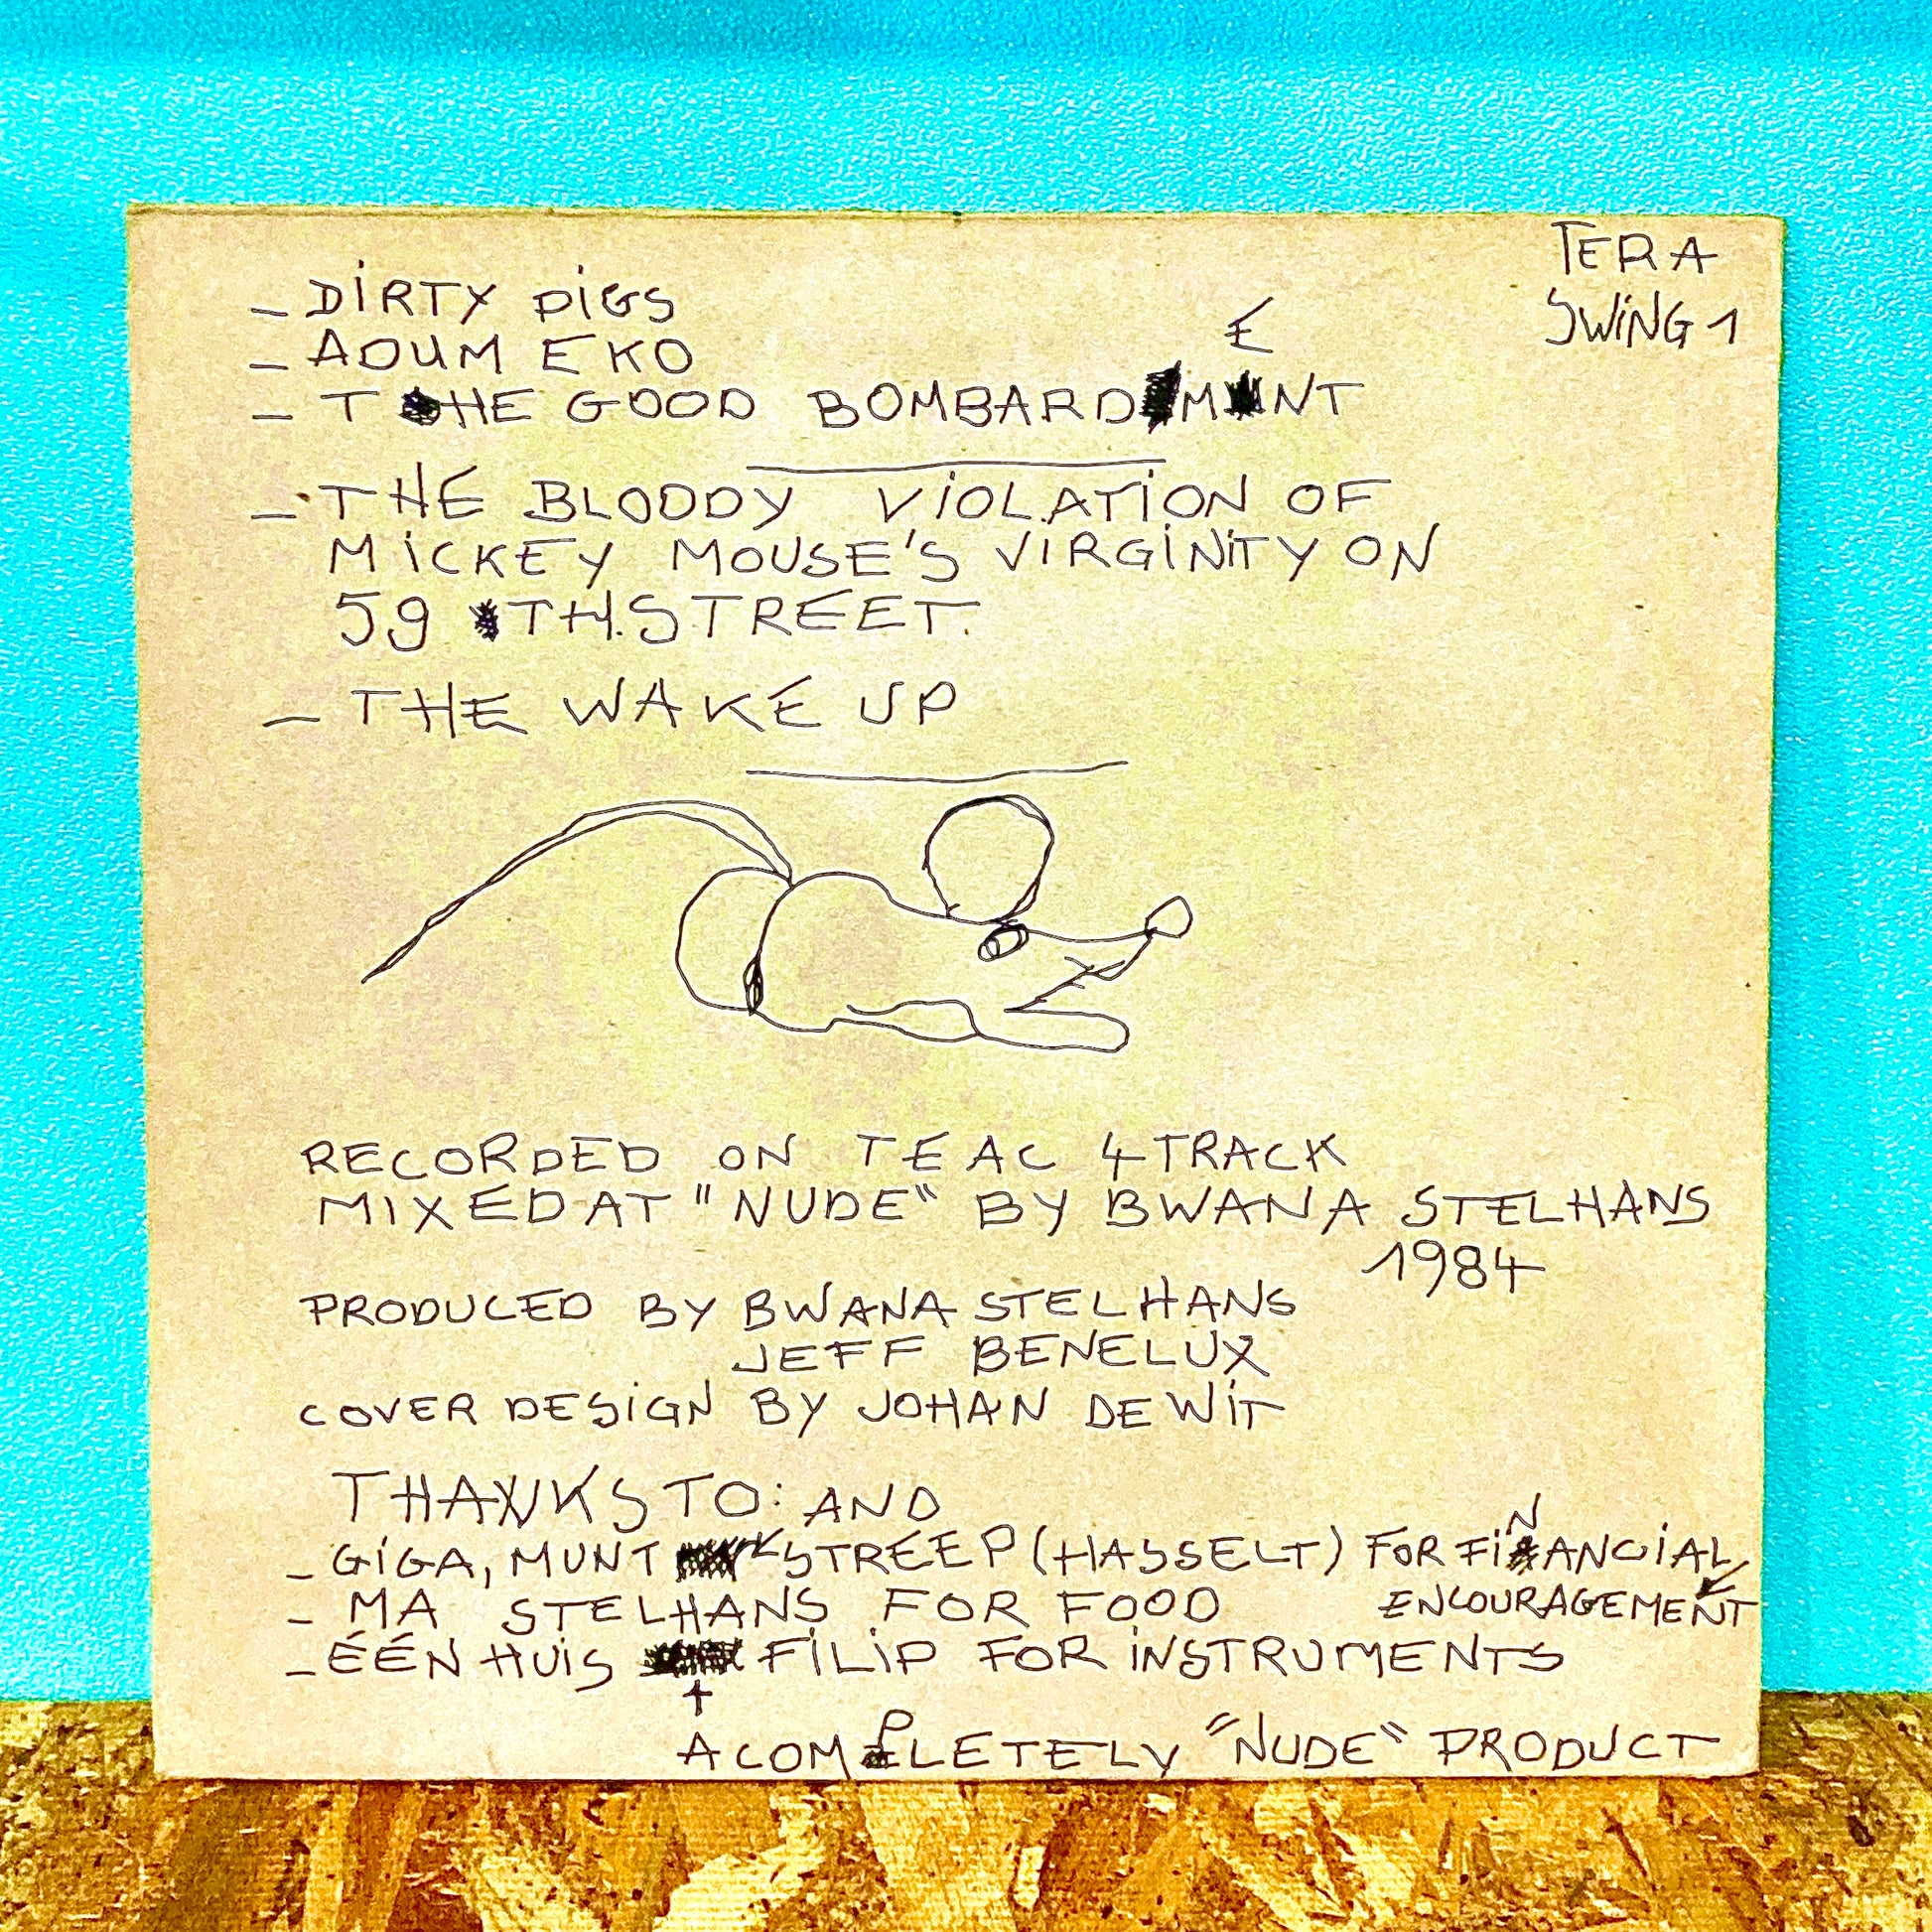 TERA
SWING 1
– DIRTY PIGS
– ADUM EKO
– THE GOOD BOMBARDMENT
– THE BLOODY VIOLATION OF
MICKEY MOUSE'S VIRGINITY ON
59 TH. STREET.
– THE WAKE UP
RECORDED ON TEAC 4 TRACK
MIXED AT "NUDE" BY BWANA STELHANS
1984
PRODUCED BY BWANA STELHANS
JEFF BENELUX
COVER DESIGN BY JOHAN DE WIT
THANKS TO: AND
– GIGA, MUNT STREEP (HASSELT) FOR FINANCIAL
ENCOURAGEMENT
– MA STELHANS FOR FOOD
– ÉÉN HUIS FILIP FOR INSTRUMENTS
+
A COMPLETELY "NUDE" PRODUCT